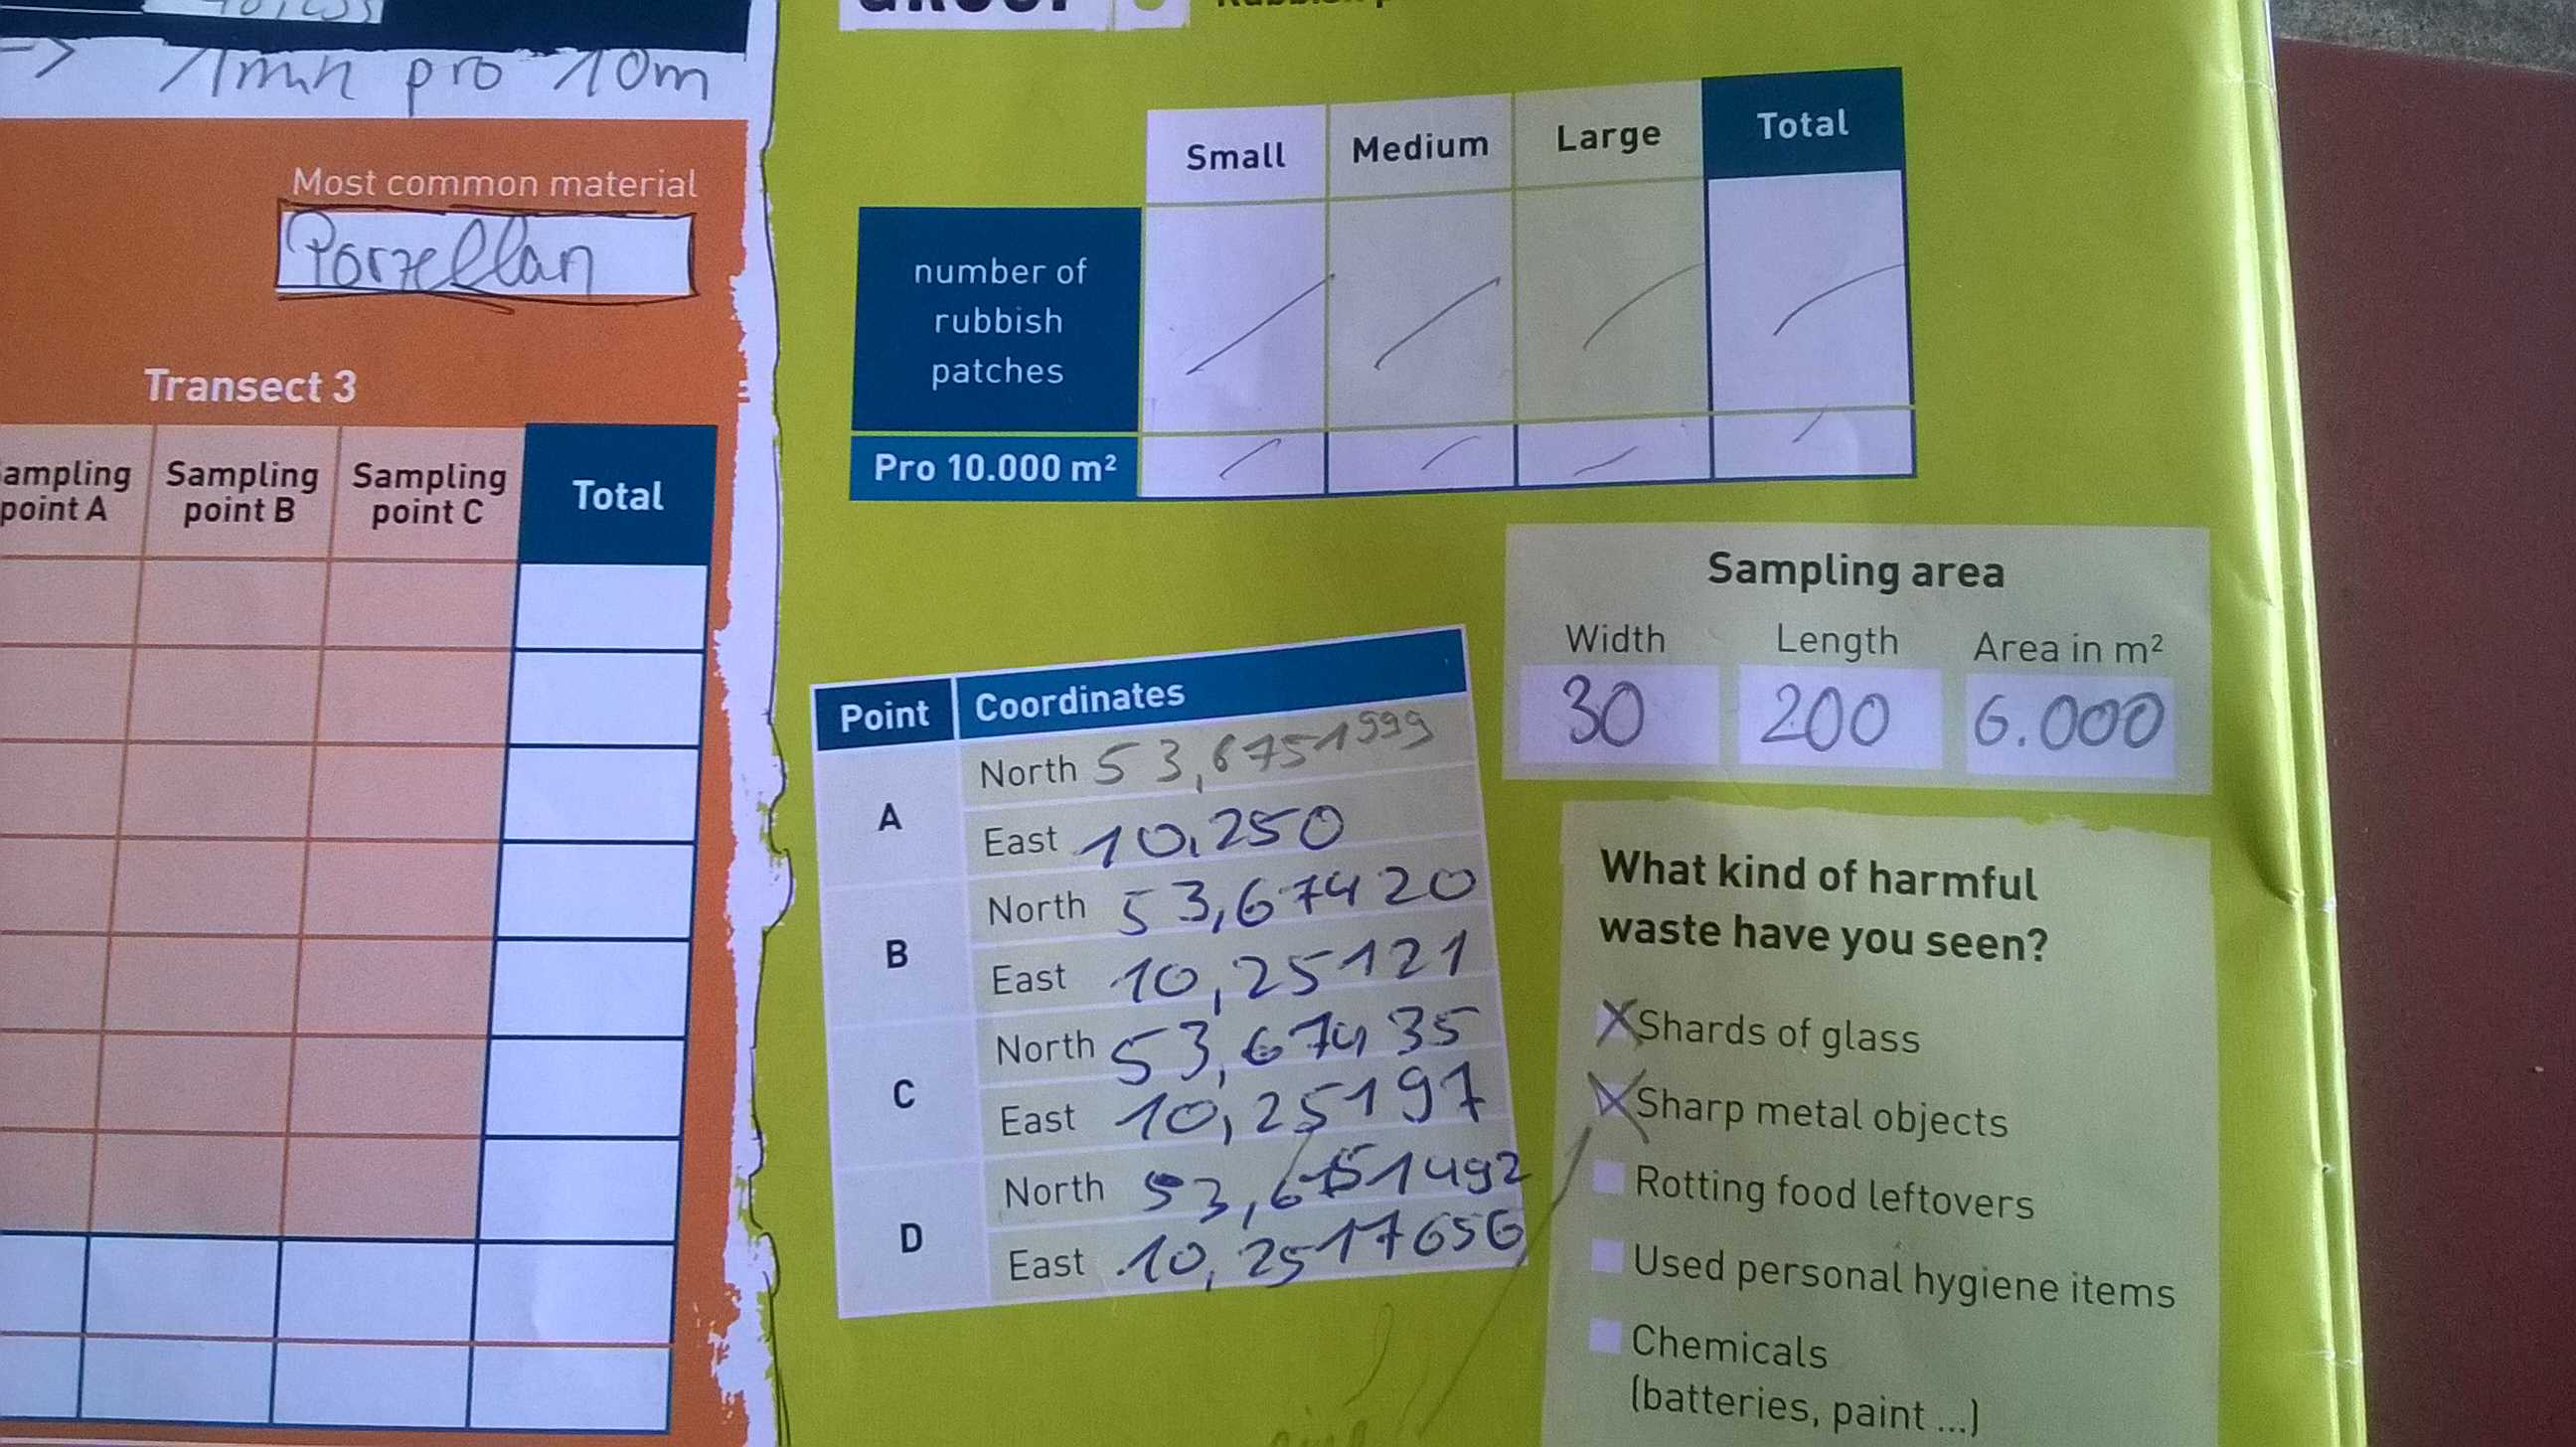 -> 1min pro 10m
Most common material
Porzellan
Transect 3
Sampling point B
Sampling point C
Total
point A
Small Medium Large Total
number of
rubbish
patches
Pro 10.000 m²
Sampling area
Width Length Area in m²
30 200 6.000
Point Coordinates
A
North 53,6751999
East 10,250
B
North 53,67420
East 10,25121
C
North 53,67435
East 10,25197
D
North 53,6751492
East 10,2517656
What kind of harmful
waste have you seen?
X Shards of glass
X Sharp metal objects
Rotting food leftovers
Used personal hygiene items
Chemicals
(batteries, paint ...)